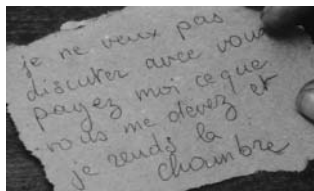 je ne veux pas
discuter avec vous
payez moi ce que
vous me devez et
je rends la
chambre